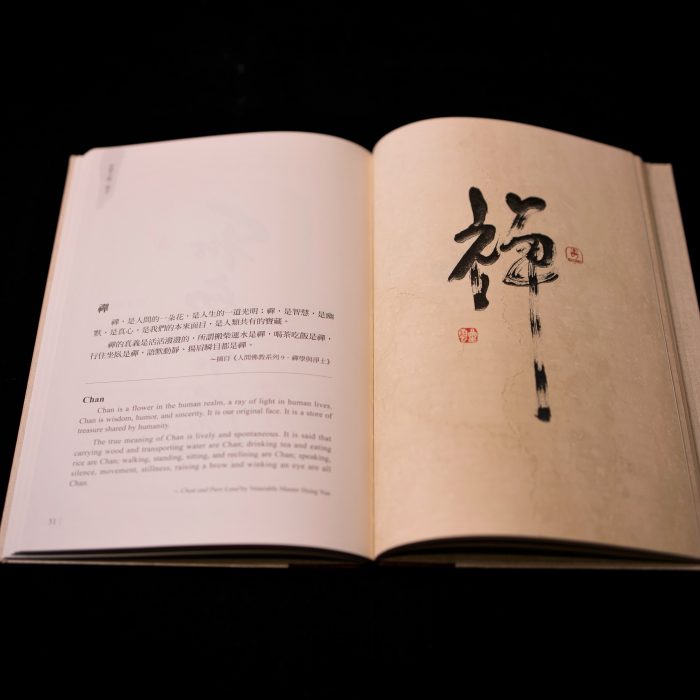 禪
禪，是人間的一朵花，是人生的一道光明；禪，是智慧，是幽
默，是真心，是我們的本來面目，是人類共有的寶藏。
禪的真義是活活潑潑的，所謂搬柴運水是禪，喝茶吃飯是禪，
行住坐臥是禪，語默動靜、揚眉瞬目都是禪。
～摘自《人間佛教系列9‧禪學與淨土》
Chan
Chan is a flower in the human realm, a ray of light in human lives,
Chan is wisdom, humor, and sincerity. It is our original face. It is a store of
treasure shared by humanity.
The true meaning of Chan is lively and spontaneous. It is said that
carrying wood and transporting water are Chan; drinking tea and eating
rice are Chan; walking, standing, sitting, and reclining are Chan; speaking,
silence, movement, stillness, raising a brow and winking an eye are all
Chan.
~ Chan and Pure Land by Venerable Master Hsing Yun
51
禪